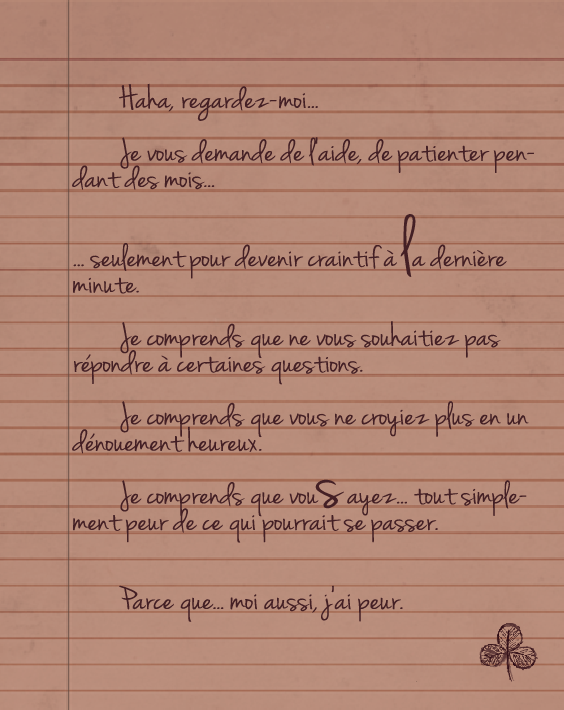 Haha, regardez-moi...
Je vous demande de l'aide, de patienter pen-
dant des mois...
... seulement pour devenir craintif à la dernière
minute.
Je comprends que ne vous souhaitiez pas
répondre à certaines questions.
Je comprends que vous ne croyiez plus en un
dénouement heureux.
Je comprends que vouS ayez... tout simple-
ment peur de ce qui pourrait se passer.
Parce que... moi aussi, j'ai peur.